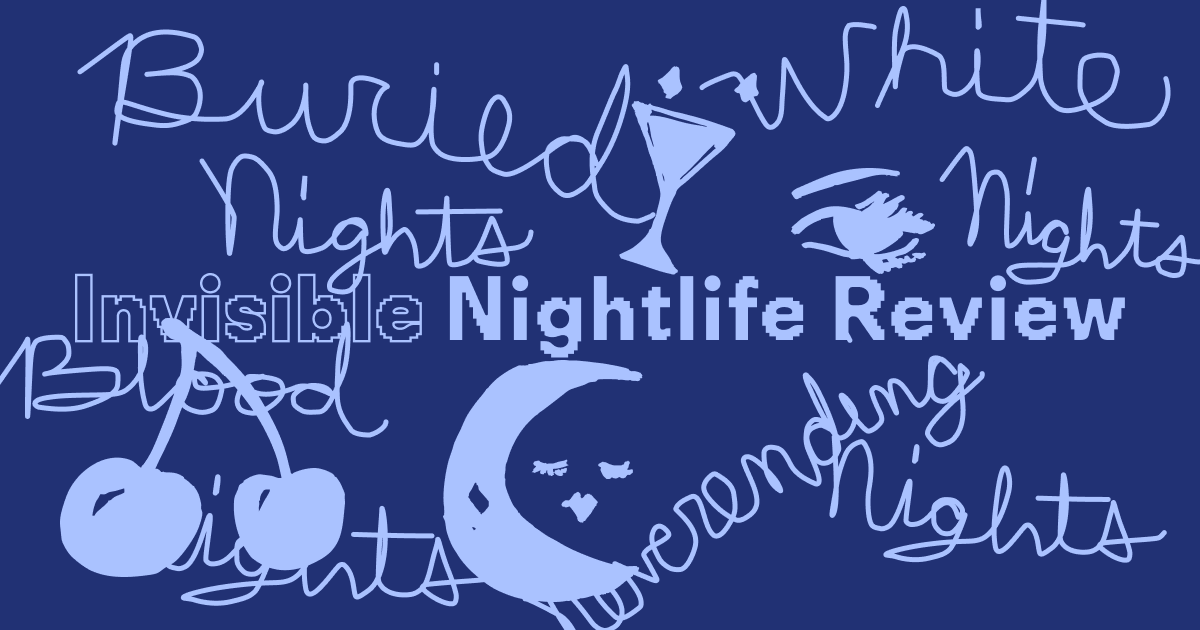 Buried
White
Nights
Nights
Invisible Nightlife Review
Blood
Nights
Neverending
Nights